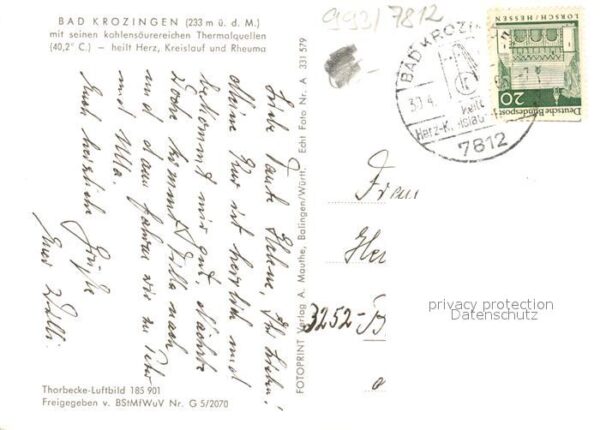 BAD KROZINGEN (233 m ü. d. M.)
mit seinen kohlensäurereichen Thermalquellen
(40,2° C.) – heilt Herz, Kreislauf und Rheuma
Liebe Tante Helene, Ihr Lieben!
Meine Kur ist herrlich und
bekommt mir gut. Nächste
Woche kommt Willa nach
und dann fahren wir zu Peter
und Ulla.
Euch herzliche Grüße
Euer Willi.
Thorbecke-Luftbild 185 901
Freigegeben v. BStMfWuV Nr. G 5/2070
FOTOPRINT Verlag A. Mauthe, Balingen/Württ. Echt Foto Nr. A 331 579
993/7812
BAD KROZING
30.4.
heilt
Herz-Kreislauf
7812
LORSCH/HESSEN
Deutsche Bundespost
20
Frau
He
3252-B
privacy protection
Datenschutz